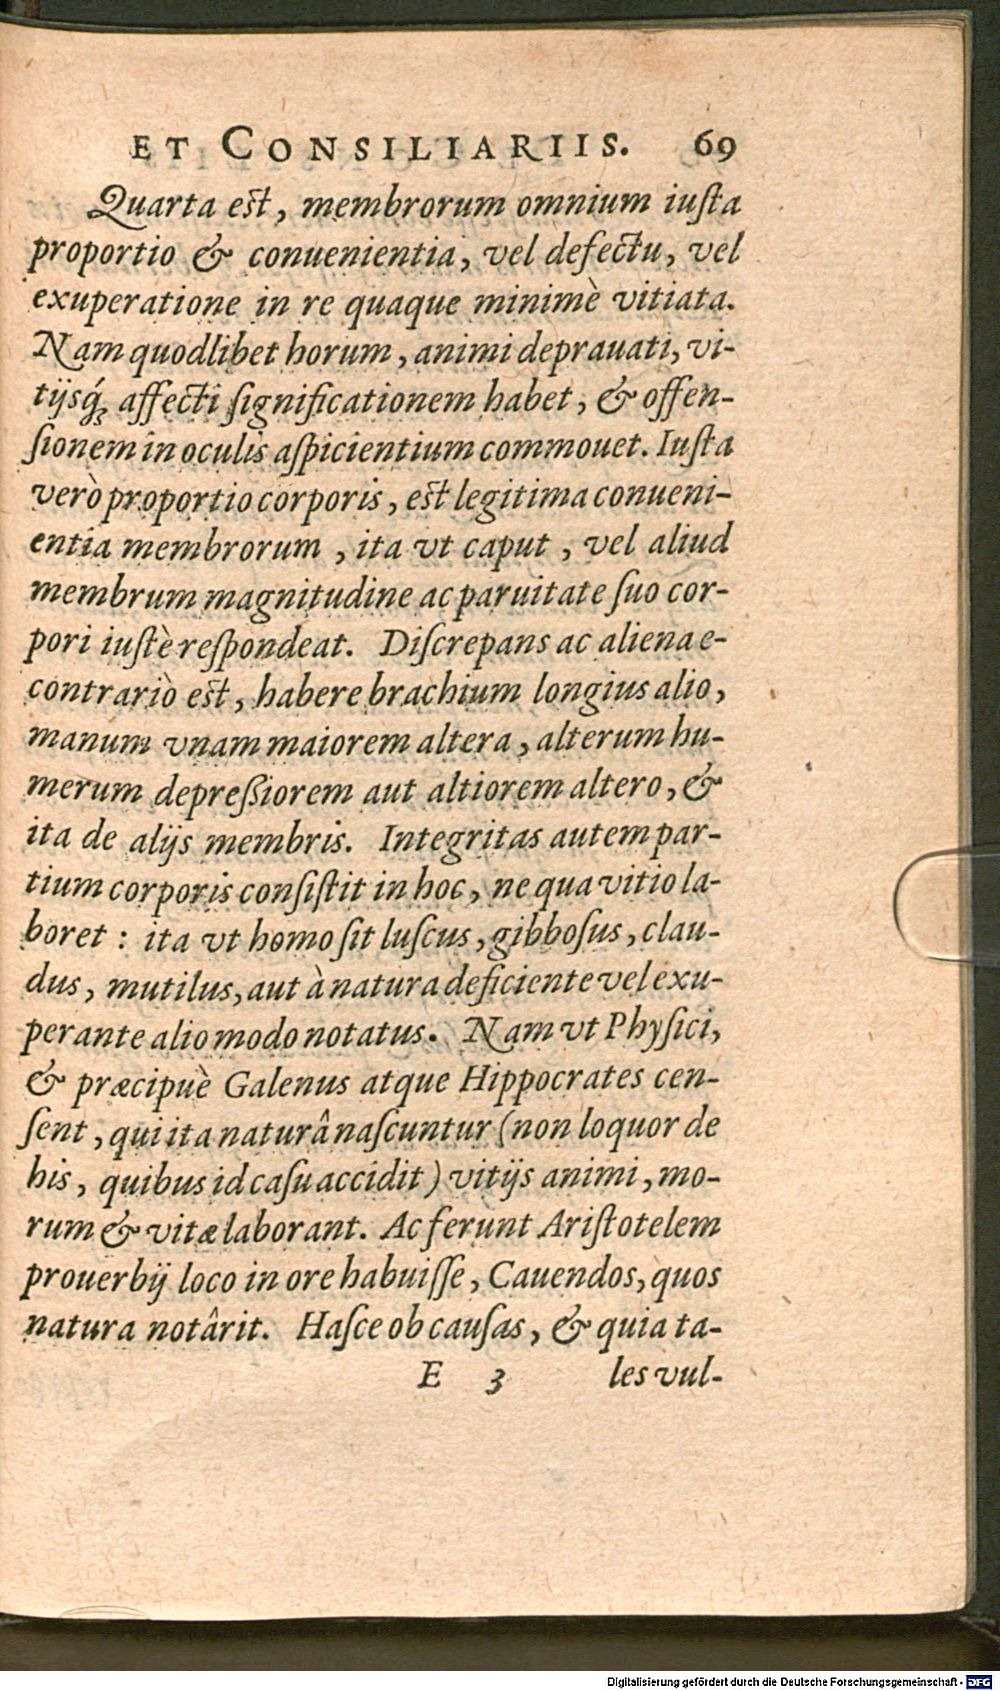 ET CONSILIARIIS. 69
Quarta est, membrorum omnium iuſta
proportio & conuenientia, vel defectu, vel
exuperatione in re quaque minimè vitiata.
Nam quodlibet horum, animi deprauati, vi-
tijsq́; affecti ſignificationem habet, & offen-
ſionem in oculis aſpicientium commouet. Iuſta
verò proportio corporis, est legitima conueni-
entia membrorum, ita vt caput, vel aliud
membrum magnitudine ac paruitate ſuo cor-
pori iuſtè reſpondeat. Diſcrepans ac aliena e-
contrariò est, habere brachium longius alio,
manum vnam maiorem altera, alterum hu-
merum depreßiorem aut altiorem altero, &
ita de alijs membris. Integritas autem par-
tium corporis conſiſtit in hoc, ne qua vitio la-
boret: ita vt homo ſit luſcus, gibboſus, clau-
dus, mutilus, aut à natura deficiente vel exu-
perante alio modo notatus. Nam vt Phyſici,
& præcipuè Galenus atque Hippocrates cen-
ſent, qui ita naturâ naſcuntur (non loquor de
his, quibus id caſu accidit) vitijs animi, mo-
rum & vitæ laborant. Ac ferunt Ariſtotelem
prouerbij loco in ore habuiſſe, Cauendos, quos
natura notârit. Haſce ob cauſas, & quia ta-
E 3 les vul-
Digitalisierung gefördert durch die Deutsche Forschungsgemeinschaft - DFG